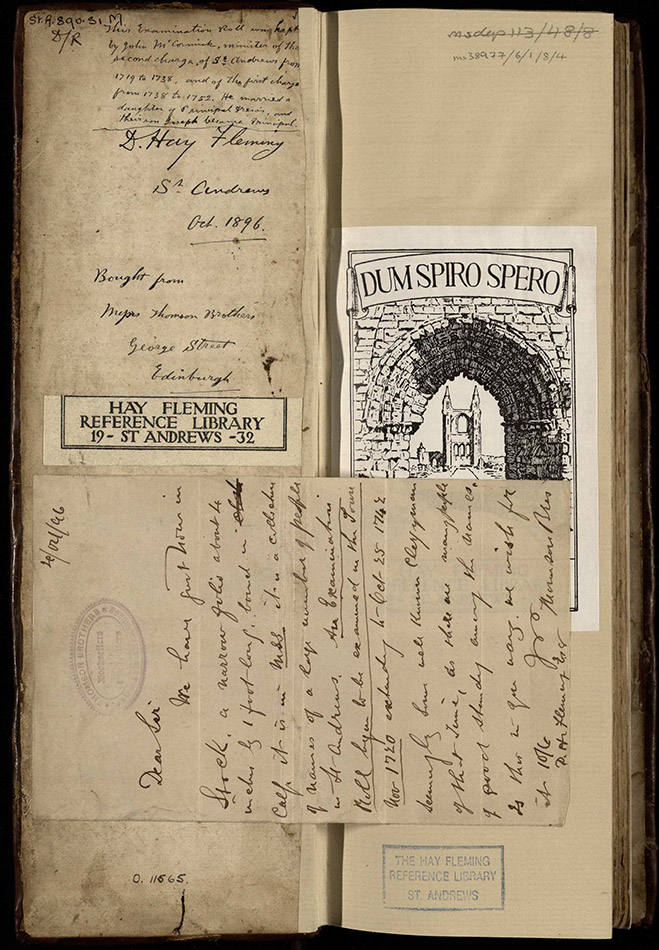 StA.890.S1.M
D/R
This Examination Roll was kept
by John McCormick, minister of the
second charge, of St. Andrews from
1719 to 1738, and of the first charge
from 1738 to 1752. He married a
daughter of Principal and
their son Joseph became Principal.
D. Hay Fleming
St Andrews
Oct. 1896.
Bought from
Messrs Thomson Brothers
George Street
Edinburgh
HAY FLEMING
REFERENCE LIBRARY
19- ST ANDREWS -32
msdep113/48/8
ms38977/6/1/8/4
DUM SPIRO SPERO
THOMSON BROTHERS
Dear Sir
We have just now in
Stock, a narrow folio about 4
inches by 1 foot long, bound in
Calf it is in Mss it is a collection
of names of a large number of people
in St Andrews. An Examination
Roll begun to be examined in the Town
Nov 1720 extending to Oct 25 1742
Seemingly some well known Clergyman
of that time, as there are many people
of good standing among the names.
Is this in your way, we wish for
it 10/6
Yrs
Thomson Bros
D. H. Fleming Esq
O. 11565.
THE HAY FLEMING
REFERENCE LIBRARY
ST. ANDREWS